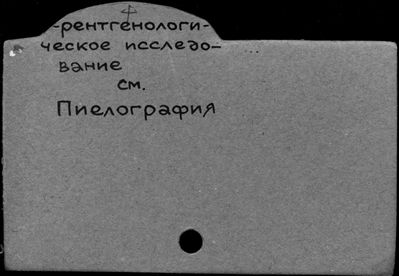 -рентгенологи-
ческое исследо-
вание
см.
Пиелография